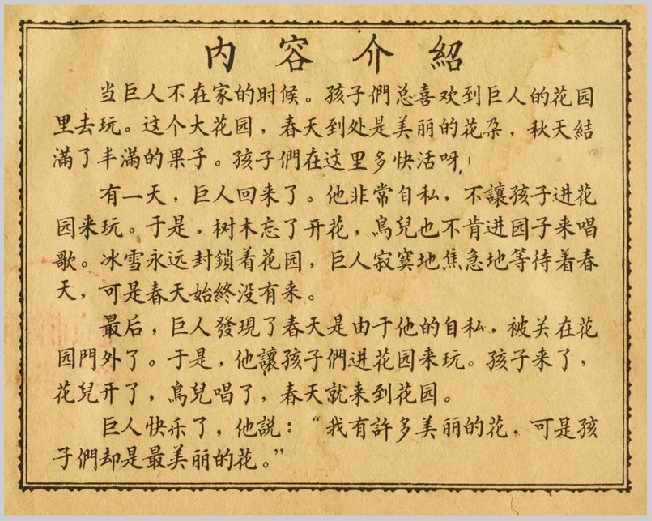 内容介紹
当巨人不在家的时候。孩子們总喜欢到巨人的花园
里去玩。这个大花园，春天到处是美丽的花朶，秋天結
滿了丰滿的果子。孩子們在这里多快活呀！
有一天，巨人回来了。他非常自私，不讓孩子进花
园来玩。于是，树木忘了开花，鳥兒也不肯进园子来唱
歌。冰雪永远封鎖着花园，巨人寂寞地焦急地等待着春
天，可是春天始終没有来。
最后，巨人發現了春天是由于他的自私，被关在花
园門外了。于是，他讓孩子們进花园来玩。孩子来了，
花兒开了，鳥兒唱了，春天就来到花园。
巨人快乐了，他說：“我有許多美丽的花，可是孩
子們却是最美丽的花。”